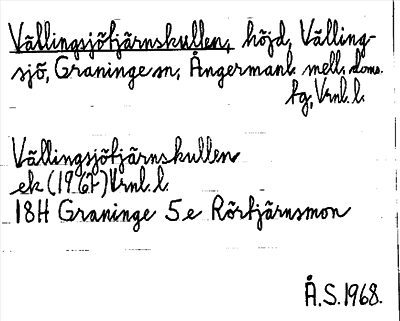 Vällingsjötjärnskullen, höjd, Välling-
sjö, Graninge sn, Ångermanl. mell. doms.
tg, Vrnl. l.
Vällingsjötjärnskullen
ek (1967) Vrnl. l.
18H Graninge 5e Rörtjärnsmon
Å.S. 1968.